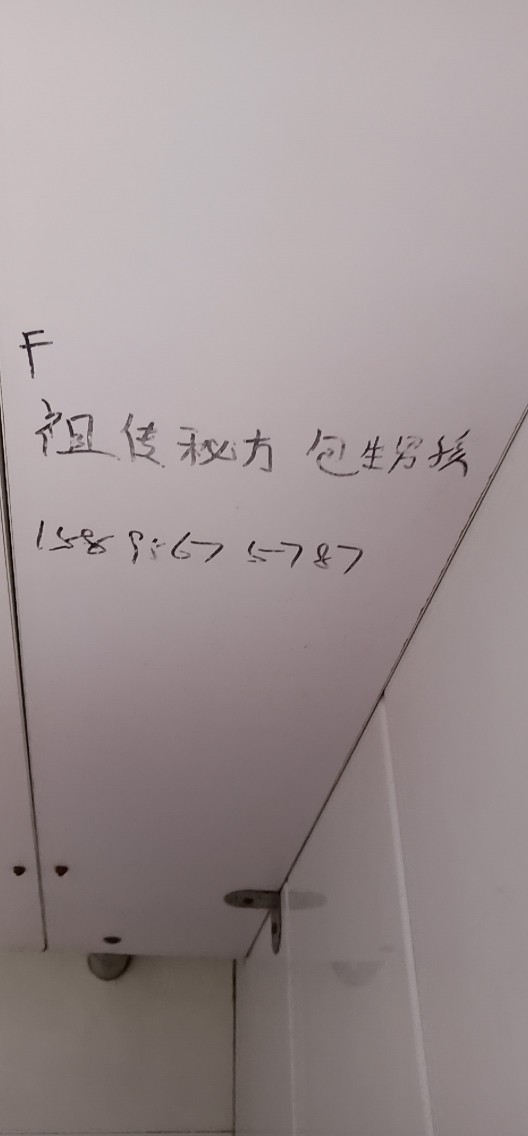 F
祖传秘方 包生男孩
158 9567 5787